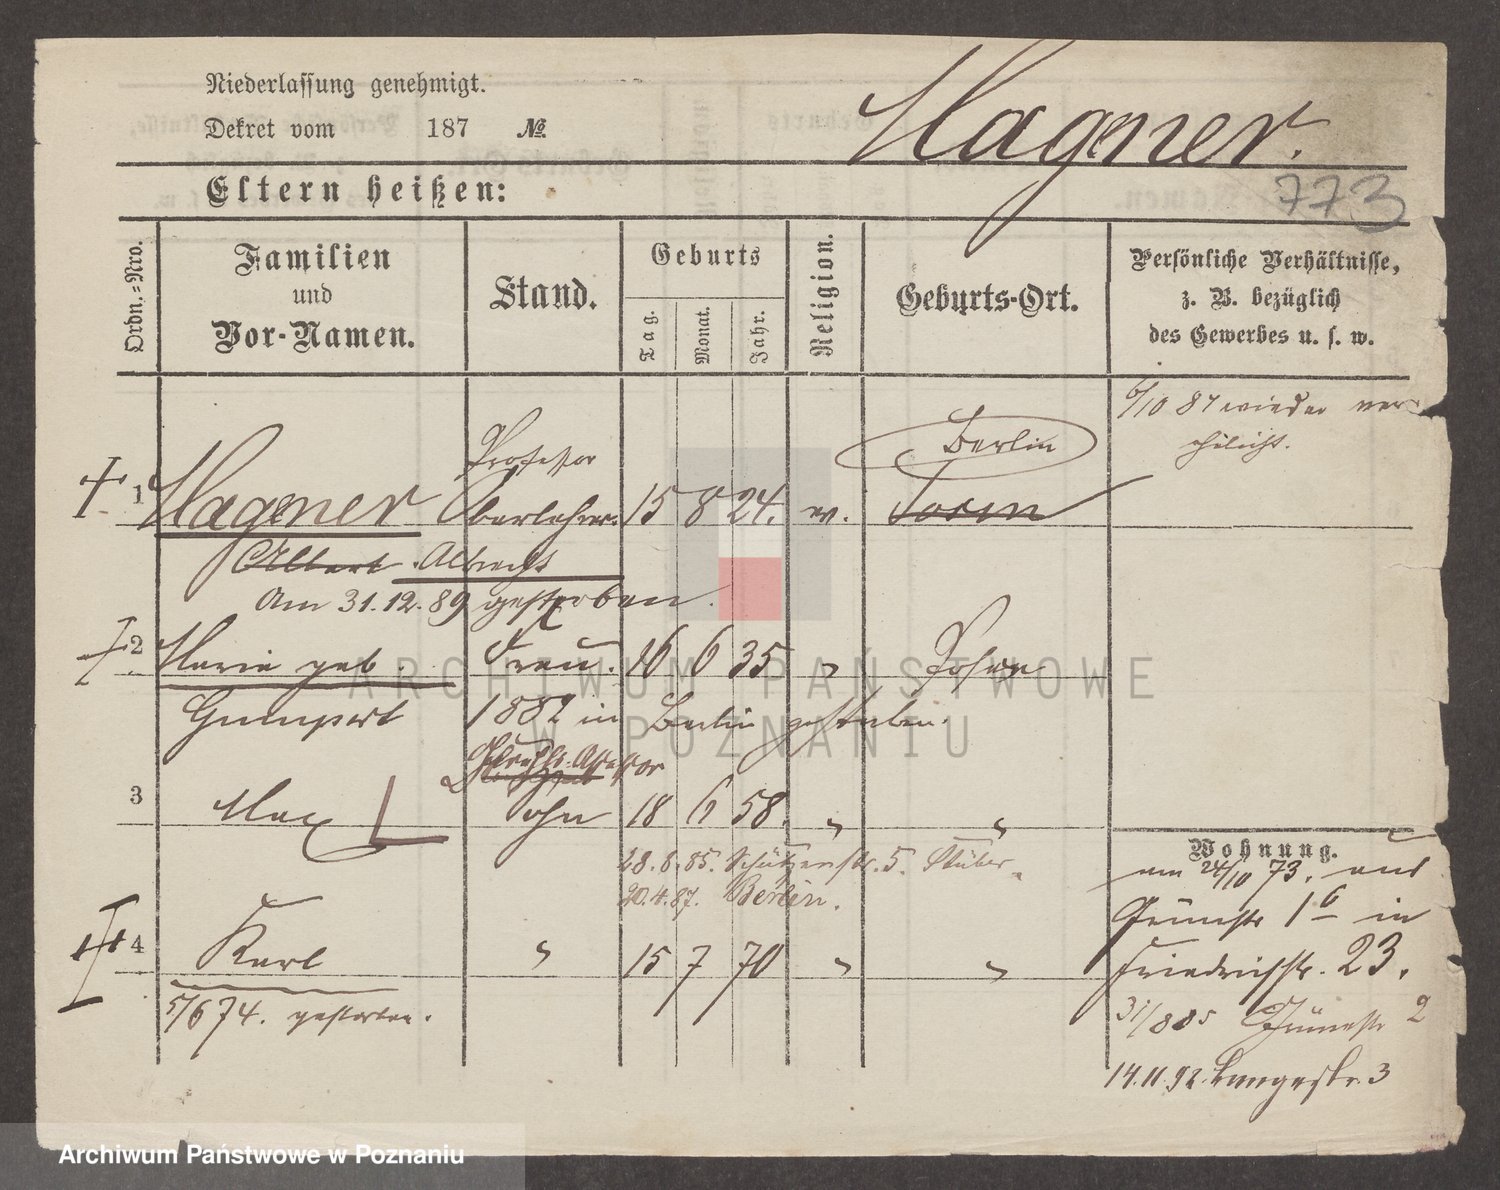 Niederlassung genehmigt.
Dekret vom 187 №
Wagner.
773
Eltern heißen:
Ordn.-Nro.
Familien
und
Vor-Namen.
Stand.
Geburts
Tag.
Monat.
Jahr.
Religion.
Geburts-Ort.
Persönliche Verhältnisse,
z. B. bezüglich
des Gewerbes u. s. w.
6/10 87 wieder ver-
ehelicht.
Professor
Berlin
1 Wagner Oberlehrer. 15 8 24. ev. Posen
Albert Albrecht
Am 31.12.89 gestorben.
2 Marie geb. Frau. 16 6 35 " Posen
Gumpert 1882 in Berlin gestorben.
Assessor
3 Max Sohn 18 6 58. " "
28.8.85. Schützenstr. 5.
20.4.87. Berlin.
4 Karl " 15 7 70 " "
5/6 74. gestorben.
Wohnung.
am 24/10 73. aus
Grünstr 1b in
Friedrichstr. 23.
31/8 85 Grünestr 2
14.11.92. Langestr. 3
ARCHIWUM PAŃSTWOWE
W POZNANIU
Archiwum Państwowe w Poznaniu